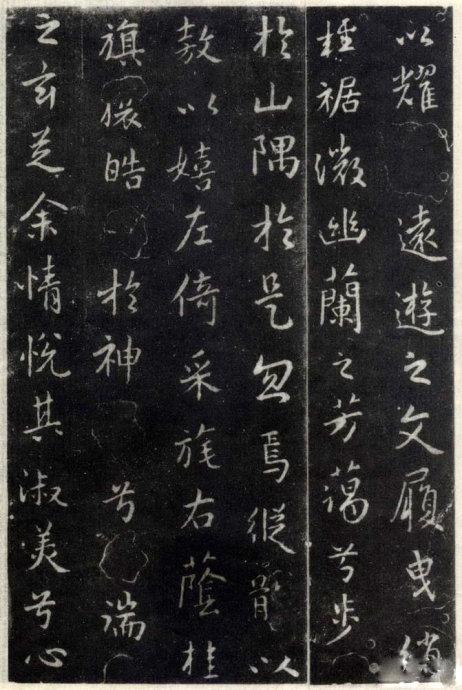 以耀遠遊之文履曳綃
裾微幽蘭之芳藹兮步
於山隅於是忽焉縱體以
敖以嬉左倚采旄右蔭桂
旗攘皓於神兮湍
之玄芝余情悅其淑美兮心